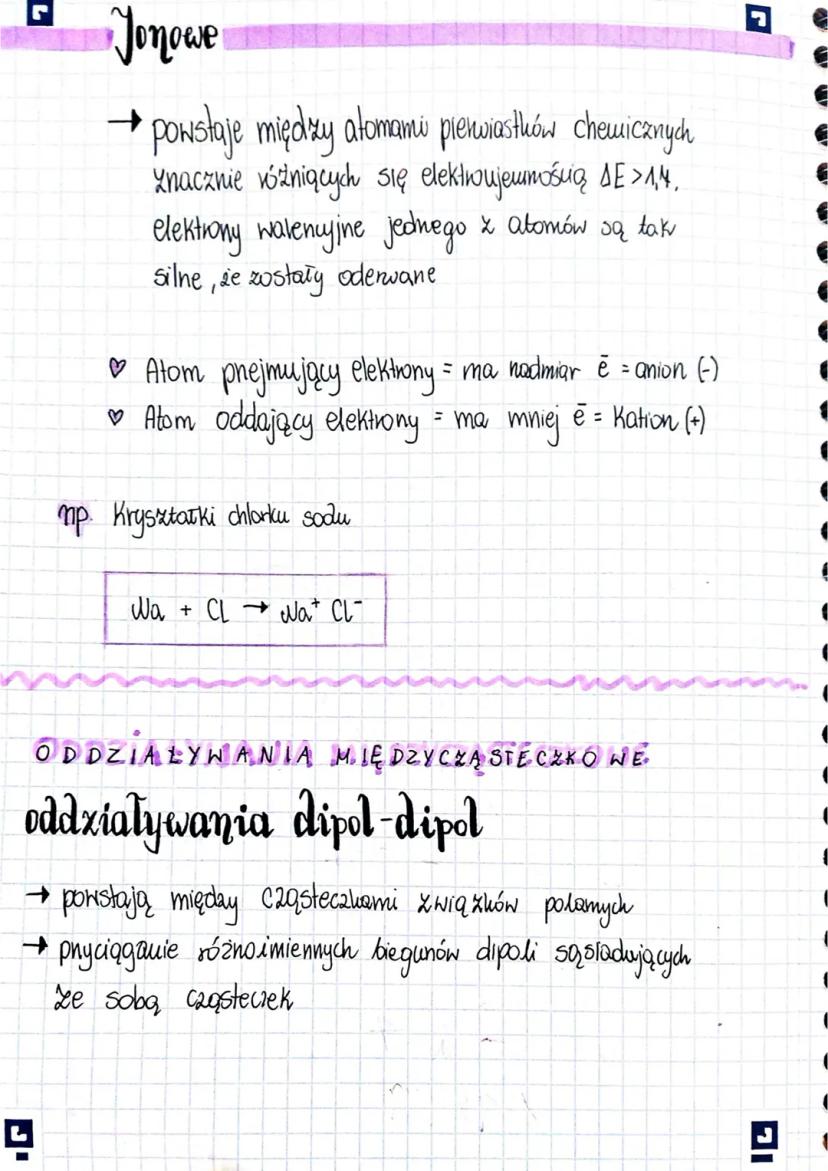 Jonowe
→ powstaje między atomami pierwiastków chemicznych
znacznie różniących się elektroujemnością ΔE > 1,4.
elektrony walencyjne jednego z atomów są tak
silne, że zostały oderwane
♡ Atom przejmujący elektrony = ma nadmiar ē = anion (-)
♡ Atom oddający elektrony = ma mniej ē = kation (+)
np. Kryształki chlorku sodu
Na + Cl → Na⁺ Cl⁻
ODDZIAŁYWANIA MIĘDZYCZĄSTECZKOWE
oddziaływania dipol-dipol
→ powstają między cząsteczkami związków polarnych
→ przyciąganie różnoimiennych biegunów dipoli sąsiadujących
ze sobą cząsteczek